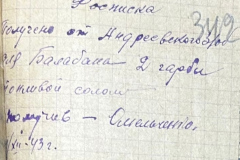 Росписка
319
Получено от Андреевского
Балабана 2 гарбы
соломы
получив – Омельченко
XII-43 г.